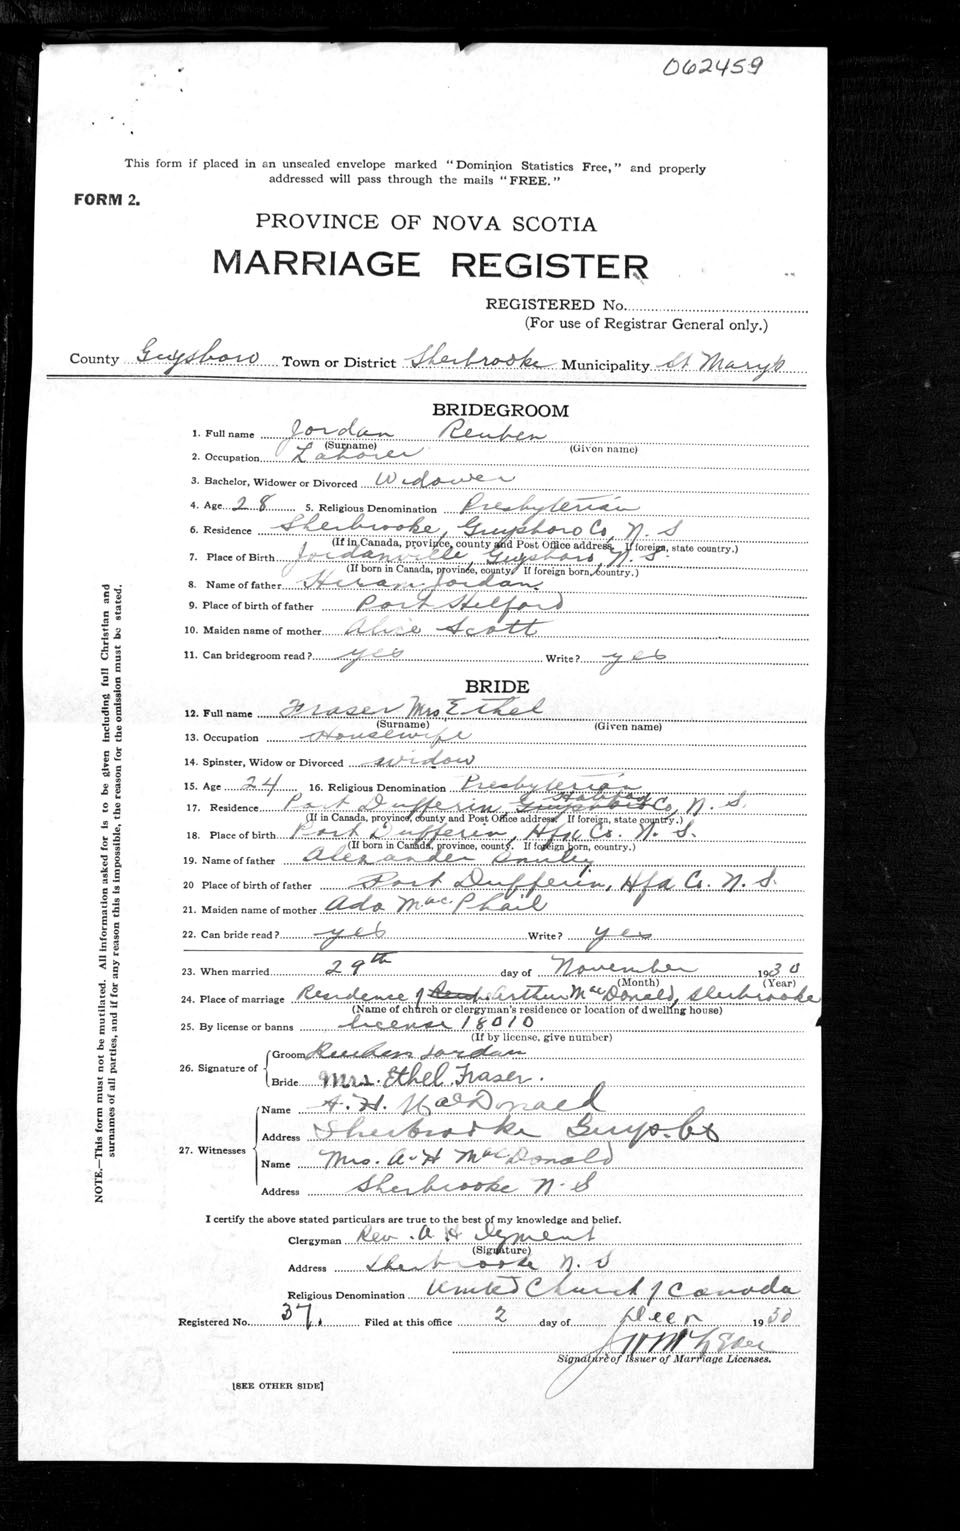 062459
This form if placed in an unsealed envelope marked "Dominion Statistics Free," and properly
addressed will pass through the mails "FREE."
FORM 2.
PROVINCE OF NOVA SCOTIA
MARRIAGE REGISTER
REGISTERED No.
(For use of Registrar General only.)
County Guysboro Town or District Sherbrooke Municipality St Mary's
BRIDEGROOM
1. Full name Jordan Reuben
(Surname) (Given name)
2. Occupation Laborer
3. Bachelor, Widower or Divorced Widower
4. Age 28 5. Religious Denomination Presbyterian
6. Residence Sherbrooke, Guysboro Co, N. S
(If in Canada, province, county and Post Office address. If foreign, state country.)
7. Place of Birth Jordanville, Guysboro, N. S.
(If born in Canada, province, county. If foreign born, country.)
8. Name of father Hiram Jordan
9. Place of birth of father Port Hilford
10. Maiden name of mother Alice Scott
11. Can bridegroom read? yes Write? yes
BRIDE
12. Full name Fraser Mrs Ethel
(Surname) (Given name)
13. Occupation Housewife
14. Spinster, Widow or Divorced widow
15. Age 24 16. Religious Denomination Presbyterian
17. Residence Port Dufferin, Halifax Co, N. S.
(If in Canada, province, county and Post Office address. If foreign, state country.)
18. Place of birth Port Dufferin, Hfd Co. N. S.
(If born in Canada, province, county. If foreign born, country.)
19. Name of father Alexander
20 Place of birth of father Port Dufferin, Hfd Co. N. S.
21. Maiden name of mother Ada MacPhail
22. Can bride read? yes Write? yes
23. When married 29th day of November 1930
(Month) (Year)
24. Place of marriage Residence of Arthur MacDonald, Sherbrooke
(Name of church or clergyman's residence or location of dwelling house)
25. By license or banns license 18010
(If by license, give number)
26. Signature of
Groom Reuben Jordan
Bride Mrs. Ethel Fraser.
27. Witnesses
Name A. H. MacDonald
Address Sherbrooke Guys. Co
Name Mrs. A. H MacDonald
Address Sherbrooke N. S
I certify the above stated particulars are true to the best of my knowledge and belief.
Clergyman Rev. A H
(Signature)
Address Sherbrooke N. S
Religious Denomination United Church of Canada
Registered No. 37 Filed at this office 2 day of Decr 1930
Signature of Issuer of Marriage Licenses.
[SEE OTHER SIDE]
NOTE.—This form must not be mutilated. All information asked for is to be given including full Christian and
surnames of all parties, and if for any reason this is impossible, the reason for the omission must be stated.